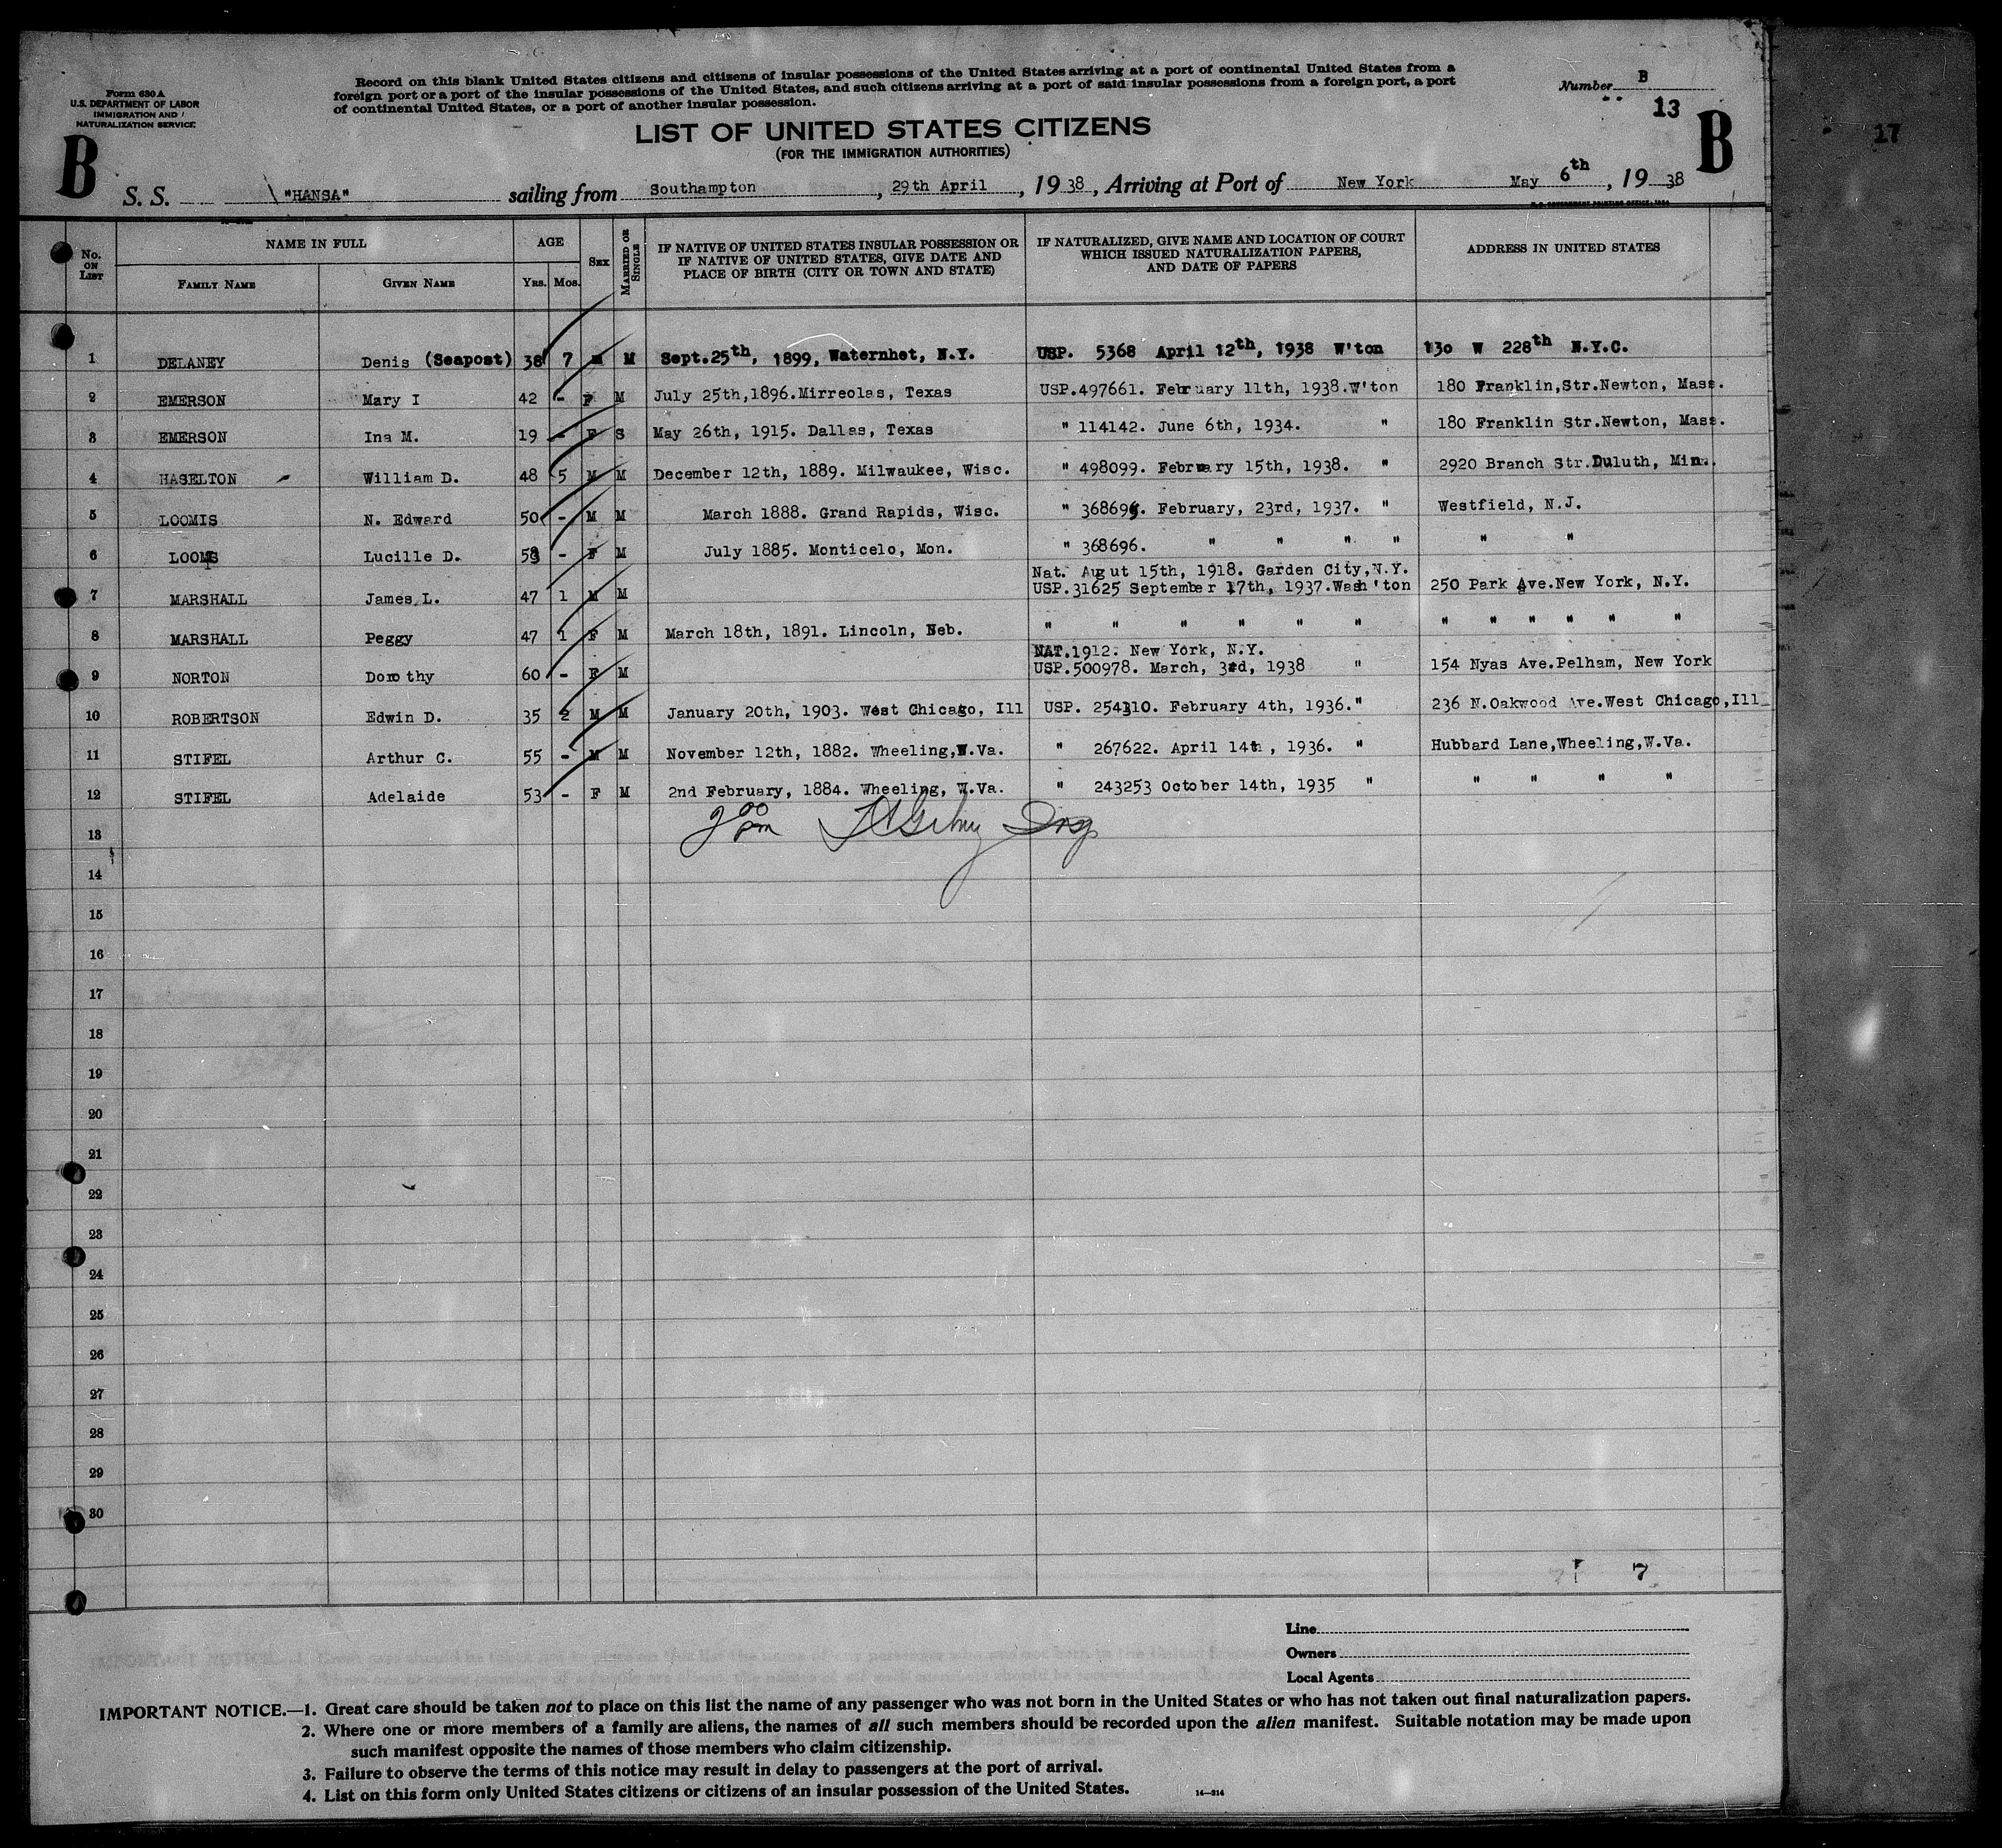 Form 630 A
U.S. DEPARTMENT OF LABOR
IMMIGRATION AND
NATURALIZATION SERVICE
Record on this blank United States citizens and citizens of insular possessions of the United States arriving at a port of continental United States from a
foreign port or a port of the insular possessions of the United States, and such citizens arriving at a port of said insular possessions from a foreign port, a port
of continental United States, or a port of another insular possession.
Number B
13
17
LIST OF UNITED STATES CITIZENS
(FOR THE IMMIGRATION AUTHORITIES)
B
B
S. S. "HANSA" sailing from Southampton, 29th April, 1938, Arriving at Port of New York May 6th, 1938
U.S. GOVERNMENT PRINTING OFFICE: 1934
No. ON LIST
NAME IN FULL
FAMILY NAME
GIVEN NAME
AGE
YRS. MOS.
SEX
MARRIED OR SINGLE
IF NATIVE OF UNITED STATES INSULAR POSSESSION OR
IF NATIVE OF UNITED STATES, GIVE DATE AND
PLACE OF BIRTH (CITY OR TOWN AND STATE)
IF NATURALIZED, GIVE NAME AND LOCATION OF COURT
WHICH ISSUED NATURALIZATION PAPERS,
AND DATE OF PAPERS
ADDRESS IN UNITED STATES
1 DELANEY Denis (Seapost) 38 7 M M Sept.25th, 1899, Waternhet, N.Y. USP. 5368 April 12th, 1938 W'ton 130 W 228th N.Y.C.
2 EMERSON Mary I 42 - F M July 25th,1896.Mirreolas, Texas USP.497661. February 11th, 1938.W'ton 180 Franklin,Str.Newton, Mass.
3 EMERSON Ina M. 19 - F S May 26th, 1915. Dallas, Texas " 114142. June 6th, 1934. " 180 Franklin Str.Newton, Mass.
4 HASELTON William D. 48 5 M M December 12th, 1889. Milwaukee, Wisc. " 498099. February 15th, 1938. " 2920 Branch Str.Duluth, Min.
5 LOOMIS N. Edward 50 - M M March 1888. Grand Rapids, Wisc. " 368695. February, 23rd, 1937. " Westfield, N.J.
6 LOOMIS Lucille D. 53 - F M July 1885. Monticelo, Mon. " 368696. " " " " " "
Nat. Augut 15th, 1918. Garden City,N.Y.
7 MARSHALL James L. 47 1 M M USP.31625 September 17th, 1937.Wash'ton 250 Park Ave.New York, N.Y.
8 MARSHALL Peggy 47 1 F M March 18th, 1891. Lincoln, Neb. " " " " " " " " " " " "
NAT.1912. New York, N.Y.
9 NORTON Dorothy 60 - F M USP.500978. March, 3rd, 1938 " 154 Nyas Ave.Pelham, New York
10 ROBERTSON Edwin D. 35 2 M M January 20th, 1903. West Chicago, Ill USP. 254310. February 4th, 1936." 236 N.Oakwood Ave.West Chicago,Ill
11 STIFEL Arthur C. 55 - M M November 12th, 1882. Wheeling,W.Va. " 267622. April 14th, 1936. " Hubbard Lane,Wheeling,W.Va.
12 STIFEL Adelaide 53 - F M 2nd February, 1884. Wheeling, W.Va. " 243253 October 14th, 1935 " " " " "
13
14
15
16
17
18
19
20
21
22
23
24
25
26
27
28
29
30
7
Line
Owners
Local Agents
IMPORTANT NOTICE.—1. Great care should be taken not to place on this list the name of any passenger who was not born in the United States or who has not taken out final naturalization papers.
2. Where one or more members of a family are aliens, the names of all such members should be recorded upon the alien manifest. Suitable notation may be made upon
such manifest opposite the names of those members who claim citizenship.
3. Failure to observe the terms of this notice may result in delay to passengers at the port of arrival.
4. List on this form only United States citizens or citizens of an insular possession of the United States. 14—214